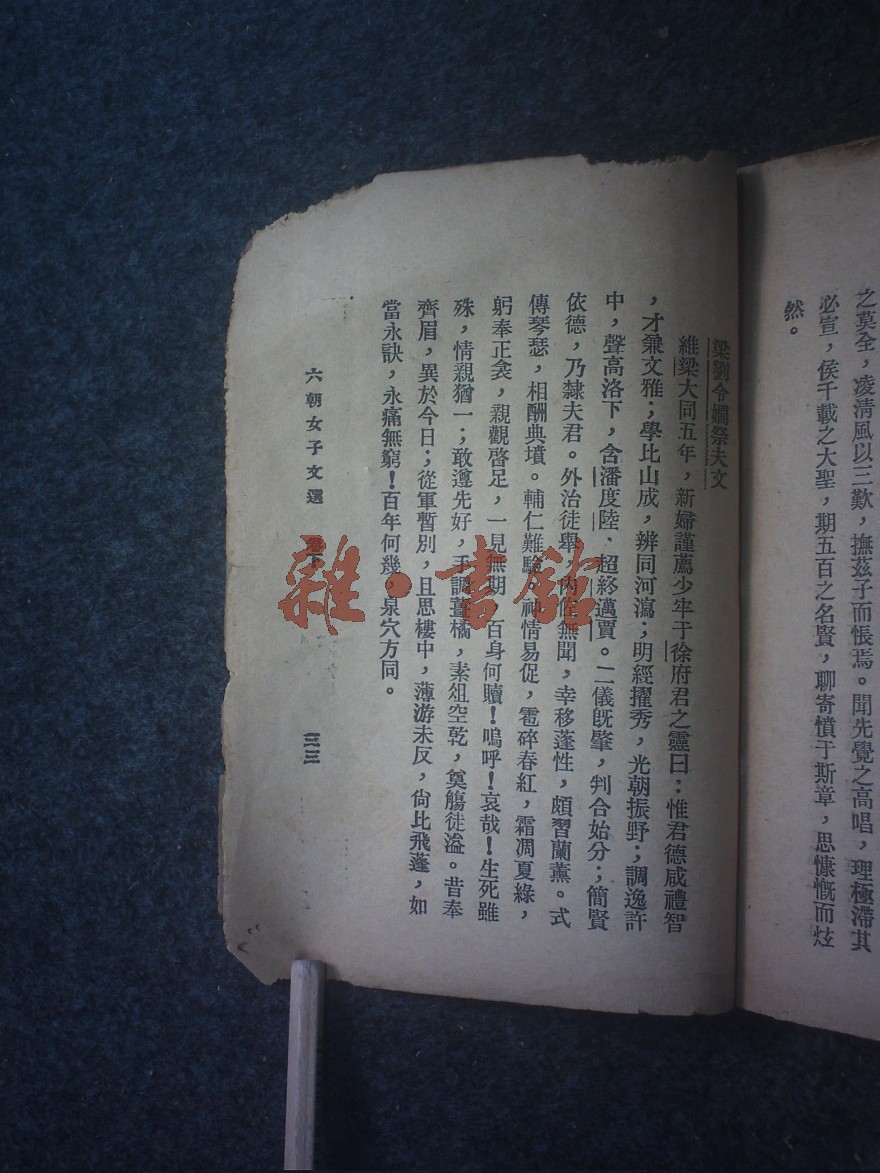 之莫全，凌淸風以三歎，撫茲子而悵焉。聞先覺之高唱，理極滯其
必宣，俟千載之大聖，期五百之名賢，聊寄憤于斯章，思慷慨而炫
然。
梁劉令嫺祭夫文
維梁大同五年，新婦謹薦少牢于徐府君之靈曰：惟君德咸禮智
，才兼文雅；學比山成，辨同河瀉；明經擢秀，光朝振野；調逸許
中，聲高洛下，含潘度陸．超終邁賈。二儀旣肇，判合始分；簡賢
依德，乃隸夫君。外治徒舉，內佐無聞，幸移蓬性，頗習蘭薰。式
傳琴瑟，相酬典墳。輔仁難驗。神情易促，雹碎春紅，霜凋夏綠，
躬奉正衾，親觀啓足，一見無期，百身何贖！嗚呼！哀哉！生死雖
殊，情親猶一；敢遵先好，手調薑橘，素俎空乾，奠觴徒溢。昔奉
齊眉，異於今日；從軍暫別，且思樓中，薄游未反，尙比飛蓬，如
當永訣，永痛無窮！百年何幾，泉穴方同。
六朝女子文選 卷下 三三
雜·書館